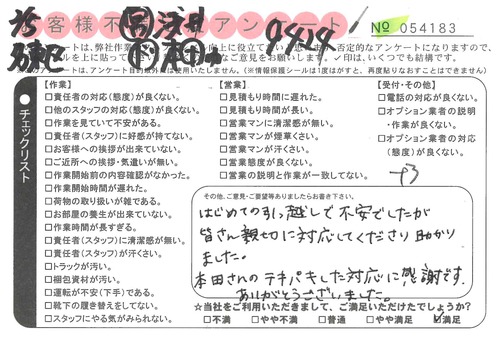 お客様不満足アンケート
№ 054183
0424
【作業】
□責任者の対応(態度)が良くない。
□他のスタッフの対応(態度)が良くない。
□作業を見ていて不安がある。
□責任者(スタッフ)に好感が持てない。
□お客様への挨拶が出来ていない。
□ご近所への挨拶・気遣いが無い。
□作業開始前の内容確認がなかった。
□作業開始時間が遅れた。
□荷物の取り扱いが雑である。
□お部屋の養生が出来ていない。
□作業時間が長すぎる。
□責任者(スタッフ)に清潔感が無い。
□責任者(スタッフ)が汗くさい。
□トラックが汚い。
□梱包資材が汚い。
□運転が不安(下手)である。
□靴下の履き替えをしない。
□スタッフにやる気がみられない。
【営業】
□見積もり時間に遅れた。
□見積もり時間が長い。
□営業マンに清潔感が無い。
□営業マンが煙草くさい。
□営業マンが汗くさい。
□営業態度が良くない。
□営業の説明と作業が一致してない。
【受付・その他】
□電話の対応が良くない。
□オプション業者の説明
・作業が良くない。
□オプション業者の対応
(態度)が良くない。
チェックリスト
その他、ご意見・ご要望等ありましたらお書き下さい。
はじめての引っ越しで不安でしたが
皆さん親切に対応してくださり助かり
ました。
本田さんのテキパキした対応に感謝です。
ありがとうございました。
☆当社をご利用いただきまして、ご満足いただけたでしょうか?
□不満 □やや不満 □普通 □やや満足 ☑満足